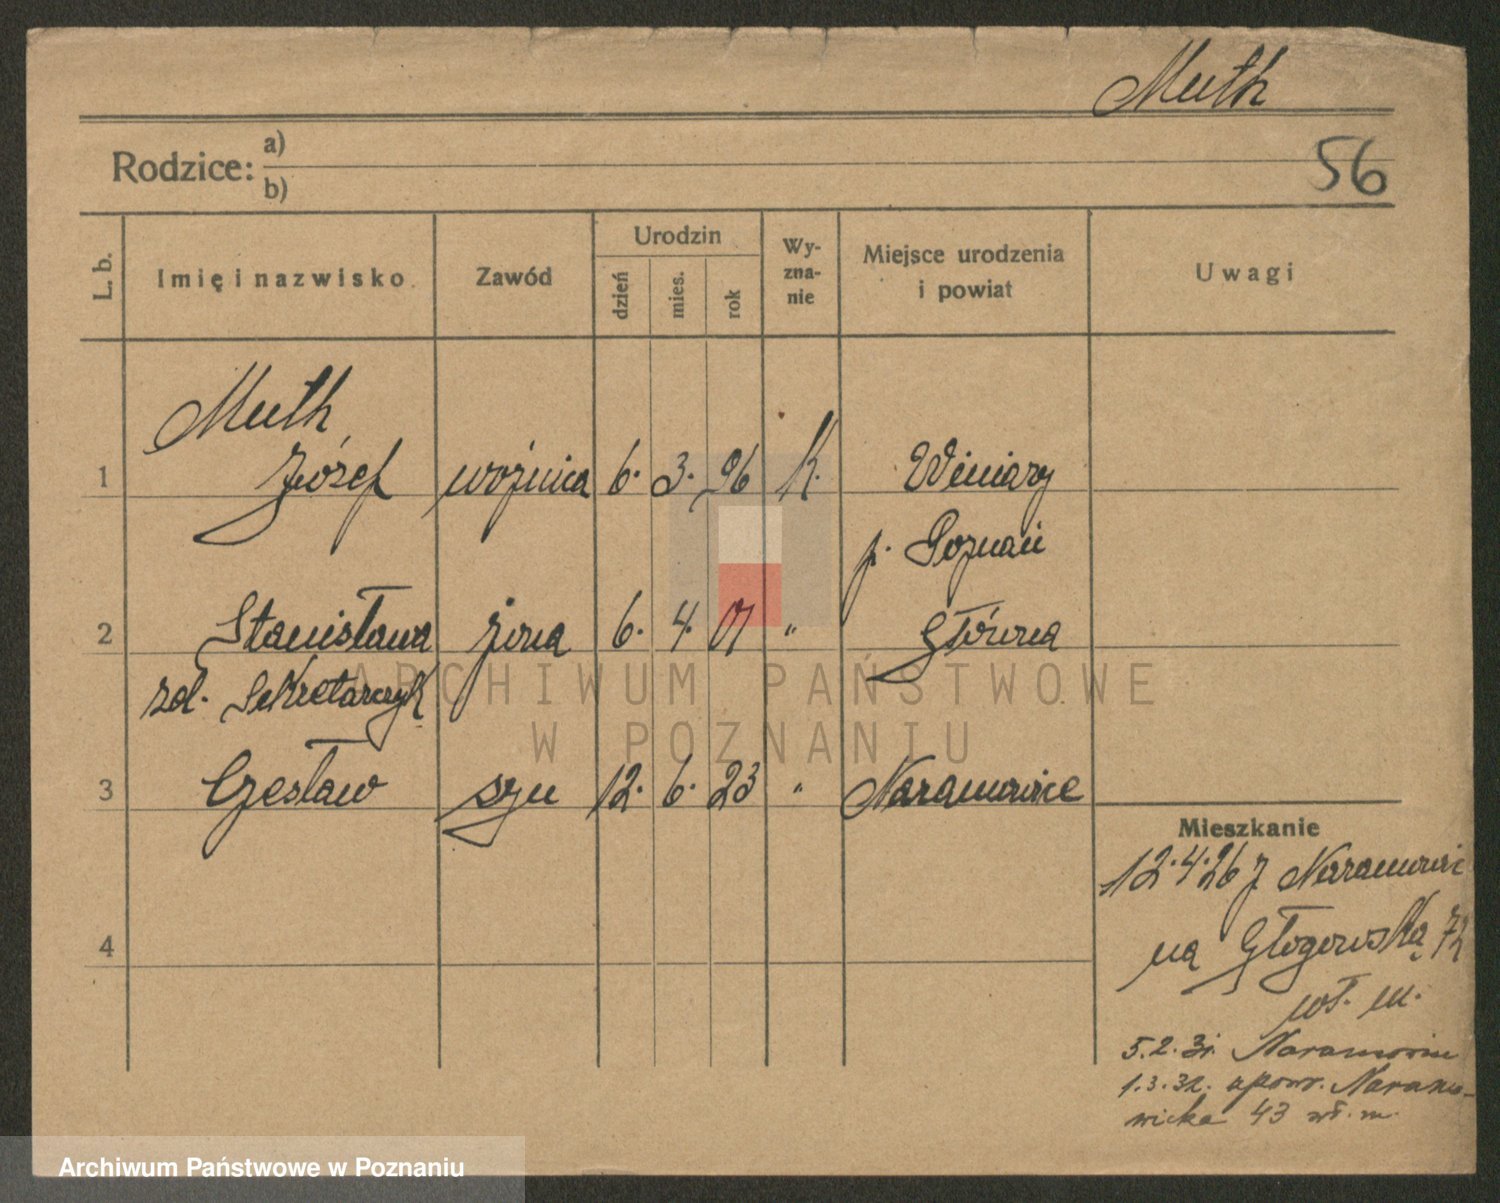 Muth
56
Rodzice: a)
b)
L. b. Imię i nazwisko Zawód Urodzin dzień mies. rok Wy-zna-nie Miejsce urodzenia i powiat Uwagi
Muth
1 Józef woźnica 6. 3. 96 k. Winiary
p. Poznań
2 Stanisława żona 6. 4. 01 " Główna
zd. Sekretarczyk
3 Czesław syn 12. 6. 23 " Naramowice
Mieszkanie
12.4.26 z Naramowic
na Głogowską 72
wł. m.
4
5.2.31. Naramowice
1.3.32. apow. Naramo-
wicka 43 wł. m.
ARCHIWUM PAŃSTWOWE
W POZNANIU
Archiwum Państwowe w Poznaniu